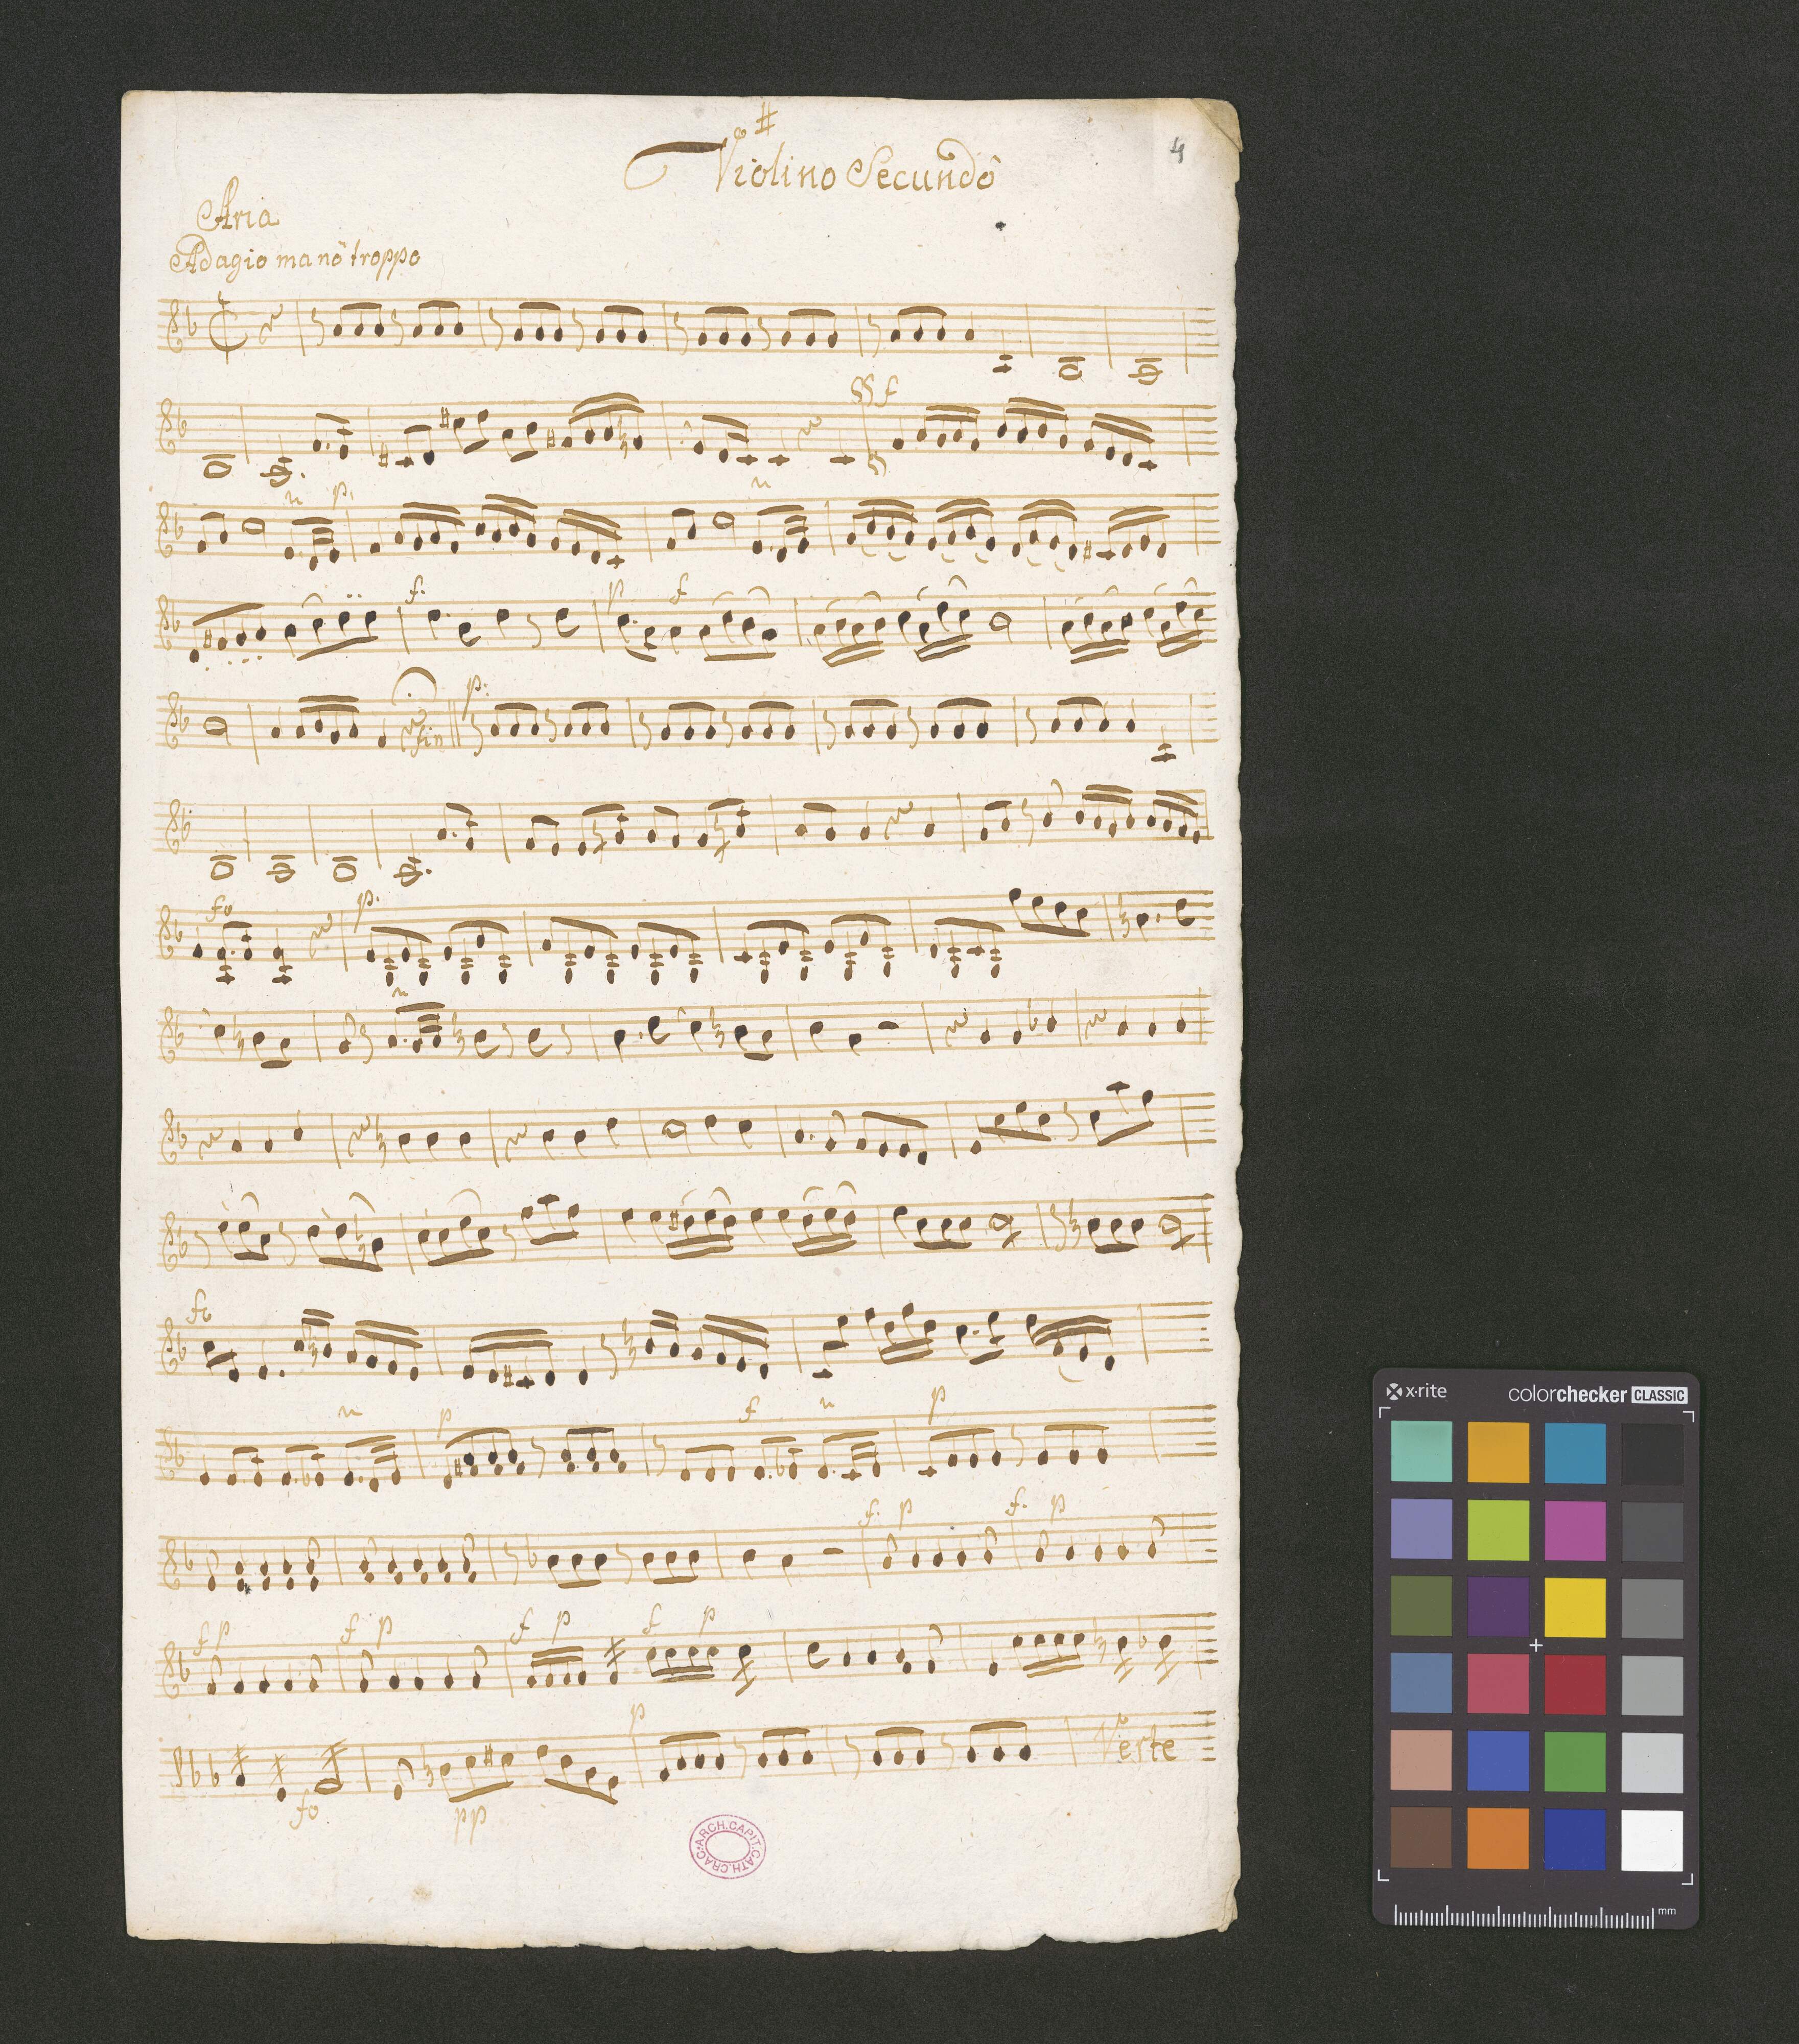 #
Violino Secundô
4
Aria
Adagio ma nô troppo
f
p.
f.
p f
p:
fin
fo
p.
fo
p f p
f. p f. p
f p f p f p f p
p
Verte
fo
pp
ARCH.CAPIT.CATH.CRAC.
x·rite colorchecker CLASSIC
mm